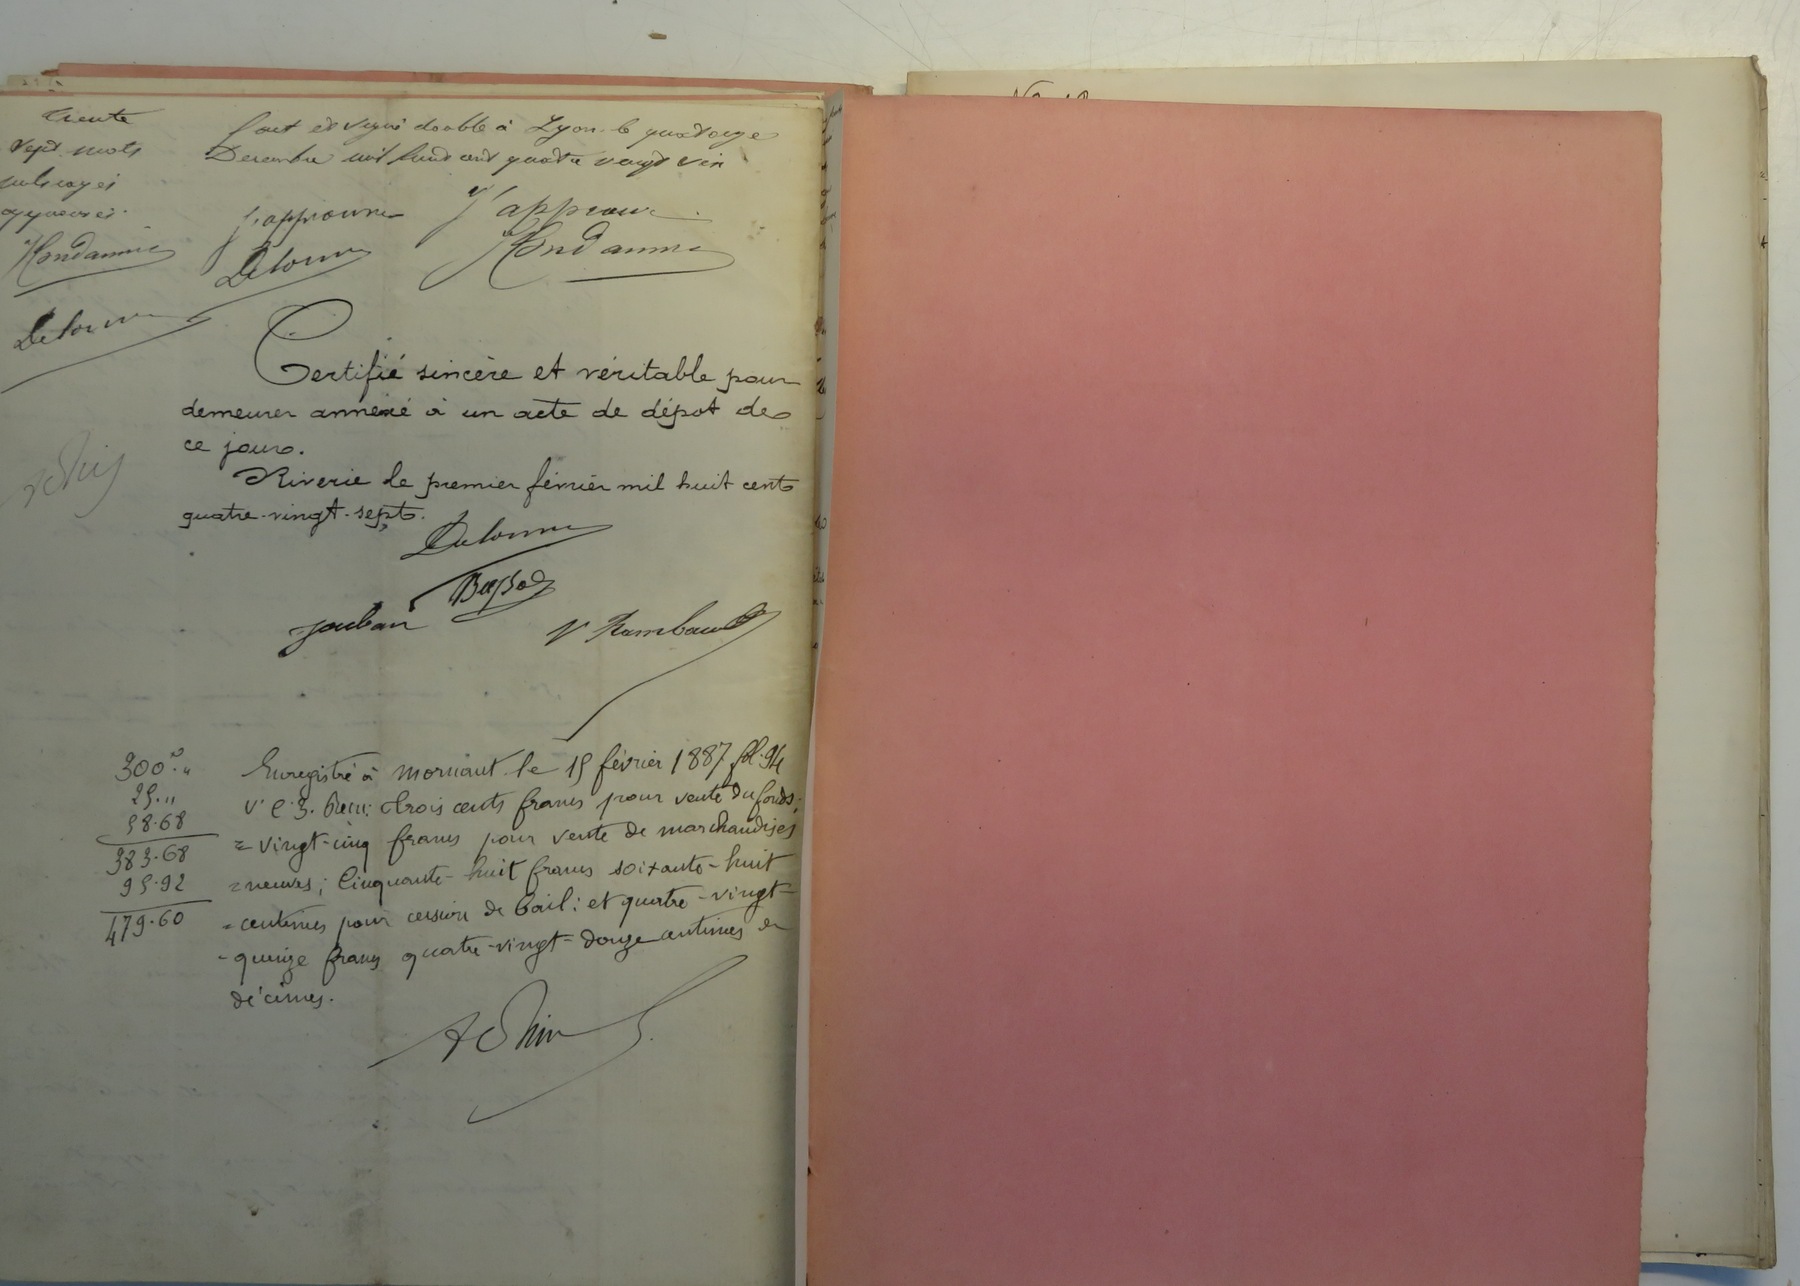 trente
sept mots
rayés
Fait et signé double à Lyon le quatorze
Decembre mil huit cent quatre vingt six
j'approuve
J'approuve
Delorme
Delorme
Certifié sincère et véritable pour
demeurer annexé à un acte de dépôt de
ce jour.
Riverie le premier février mil huit cent
quatre-vingt-sept.
Delorme
Joubar
V Rambaud
300 "
25 "
58.68
383.68
95.92
479.60
Enregistré à Mornant le 15 février 1887, fol. 94
v° c. 3. Reçu: trois cents francs pour vente du fonds;
= vingt-cinq francs pour vente de marchandises
= neuves; Cinquante-huit francs soixante-huit
= centimes pour cession de bail; et quatre-vingt-
- quinze francs quatre-vingt-douze centimes en
décimes.